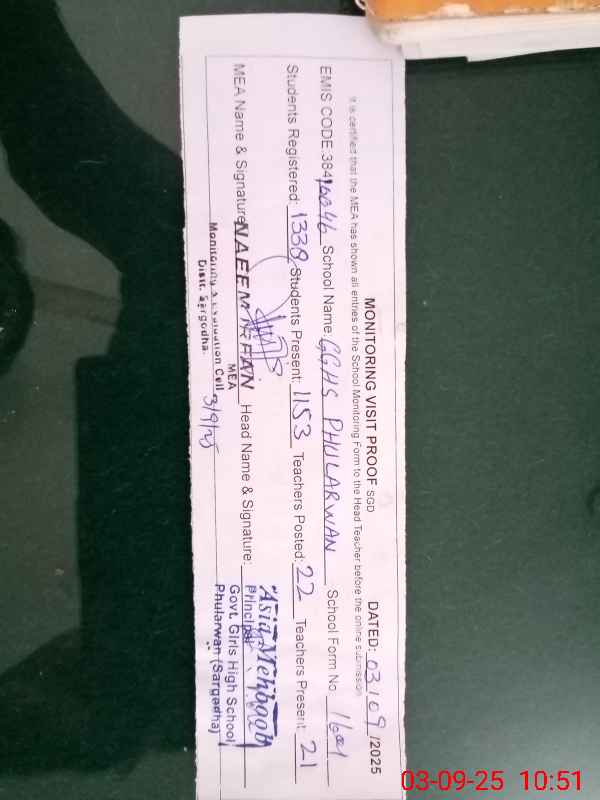 MONITORING VISIT PROOF SGD DATED: 03/09/2025
It is certified that the MEA has shown all entries of the School Monitoring Form to the Head Teacher before the online submission
EMIS CODE 38410046 School Name: GGHS PHULARWAN School Form No. 1601
Students Registered: 1330 Students Present: 1153 Teachers Posted: 22 Teachers Present: 21
MEA Name & Signature NAEEM IRFAN Head Name & Signature: Asia Mehboob
MEA Principal
Monitoring & Evaluation Cell 3/9/25 Govt. Girls High School
Distt. Sargodha. Phularwan (Sargodha)
03-09-25 10:51